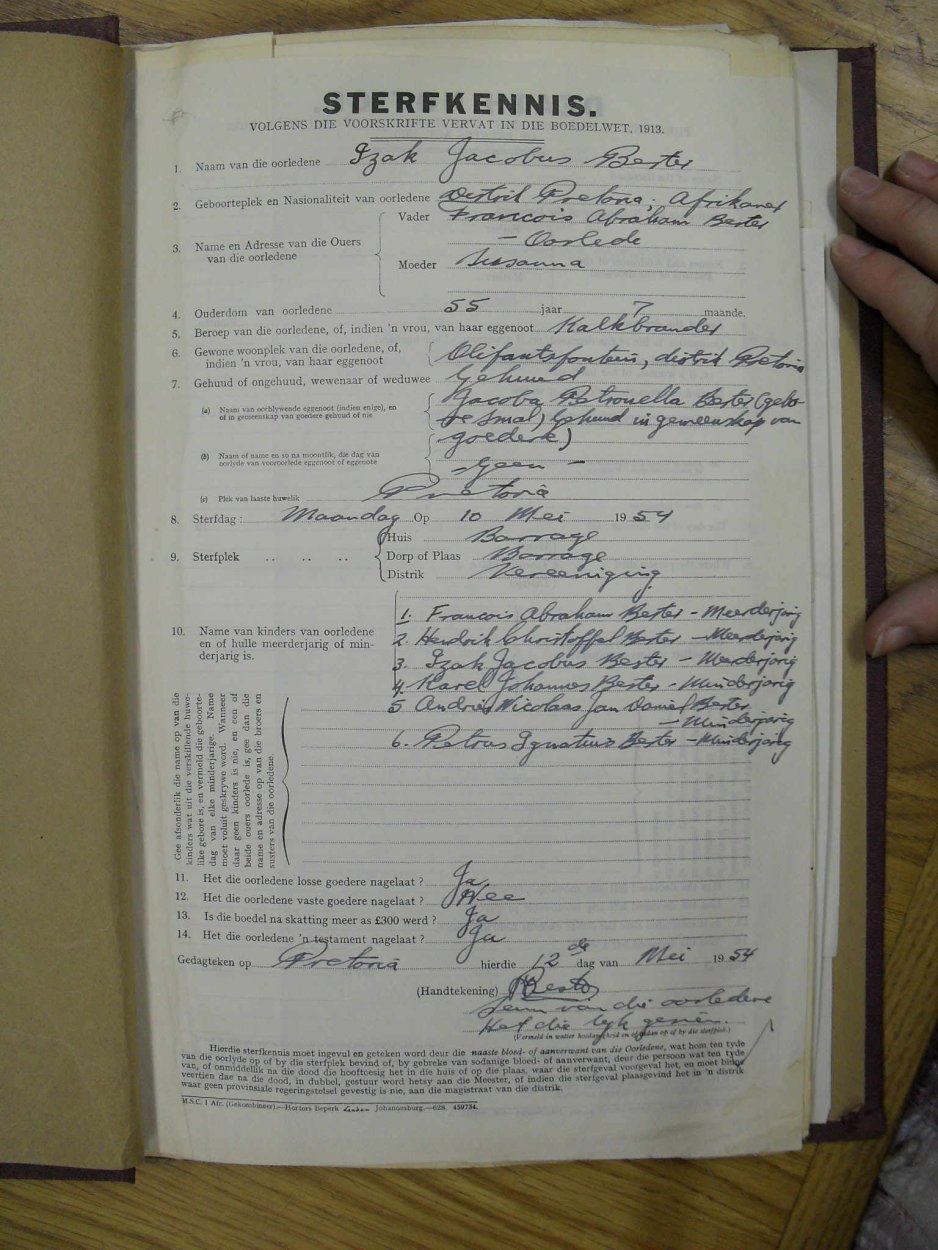 STERFKENNIS.
VOLGENS DIE VOORSKRIFTE VERVAT IN DIE BOEDELWET, 1913.
1. Naam van die oorledene Izak Jacobus Bester
2. Geboorteplek en Nasionaliteit van oorledene Distrik Pretoria; Afrikaner
3. Name en Adresse van die Ouers van die oorledene
Vader Francois Abraham Bester
- Oorlede
Moeder Susanna
4. Ouderdom van oorledene 55 jaar 7 maande.
5. Beroep van die oorledene, of, indien 'n vrou, van haar eggenoot Kalkbrander
6. Gewone woonplek van die oorledene, of,
indien 'n vrou, van haar eggenoot Olifantsfontein, distrik Pretoria
7. Gehuud of ongehuud, wewenaar of weduwee Gehuud
(a) Naam van oorblywende eggenoot (indien enige), en
of in gemeenskap van goedere gehuud of nie
Jacoba Petronella Bester (gebo-
re Smal, Gehuud in gemeenskap van
goedere)
(b) Naam of name en so na moontlik, die dag van
oorlyde van vooroorlede eggenoot of eggenote
- Geen -
(c) Plek van laaste huwelik Pretoria
8. Sterfdag : Maandag Op 10 Mei 1954
9. Sterfplek .. .. ..
Huis Barrage
Dorp of Plaas Barrage
Distrik Vereeniging
10. Name van kinders van oorledene
en of hulle meerderjarig of min-
derjarig is.
1. Francois Abraham Bester - Meerderjarig
2. Hendrik Christoffel Bester - Meerderjarig
3. Izak Jacobus Bester - Meerderjarig
4. Karel Johannes Bester - Minderjarig
5 Andries Nicolaas Jan Daniel Bester
- Minderjarig
6. Petrus Ignatius Bester - Minderjarig
Gee afsonderlik die name op van die
kinders wat uit die verskillende huwe-
like gebore is, en vermeld die geboorte-
dag van elke minderjarige. Name
moet voluit geskrywe word. Wanneer
daar geen kinders is nie, en een of
beide ouers oorlede is, gee dan die
name en adresse op van die broers en
susters van die oorledene.
11. Het die oorledene losse goedere nagelaat ? Ja
12. Het die oorledene vaste goedere nagelaat ? Nee
13. Is die boedel na skatting meer as £300 werd ? Ja
14. Het die oorledene 'n testament nagelaat ? Ja
Gedagteken op Pretoria hierdie 12de dag van Mei 1954
(Handtekening) Bester
Seun van die oorledene
Het die lyk gesien.
Hierdie sterfkennis moet ingevul en geteken word deur die naaste bloed- of aanverwant van die Oorledene, wat hom ten tyde
van die oorlyde op of by die sterfplek bevind of, by gebreke van sodanige bloed- of aanverwant, deur die persoon wat ten tyde
van, of onmiddellik na die dood die hooftoesig het in die huis of op die plaas, waar die sterfgeval voorgeval het, en moet binne
veertien dae na die dood, in dubbel, gestuur word hetsy aan die Meester, of indien die sterfgeval plaasgevind het in 'n distrik
waar geen provinsiale regeringstelsel gevestig is nie, aan die magistraat van die distrik.
M.S.C. 1 Afr. (Gekombineer).—Hortors Beperk Johannesburg.—628. 459734.